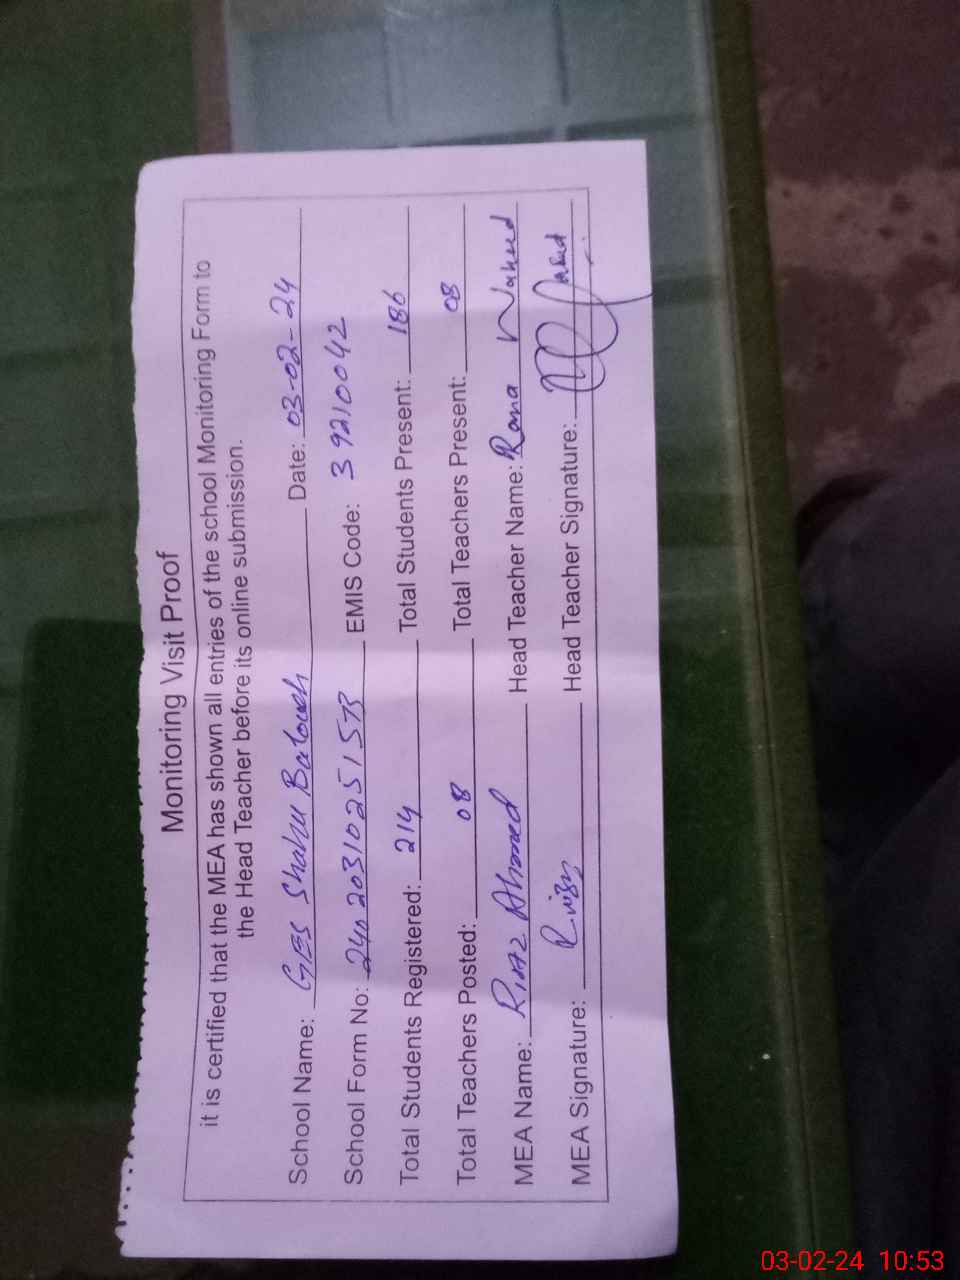 Monitoring Visit Proof
it is certified that the MEA has shown all entries of the school Monitoring Form to
the Head Teacher before its online submission.
School Name: GES Shahu Balouch Date: 03-02-24
School Form No: 240203102515TB EMIS Code: 39210042
Total Students Registered: 214 Total Students Present: 186
Total Teachers Posted: 08 Total Teachers Present: 08
MEA Name: Riaz Ahmed Head Teacher Name: Rana Naheed
MEA Signature: Head Teacher Signature:
03-02-24 10:53